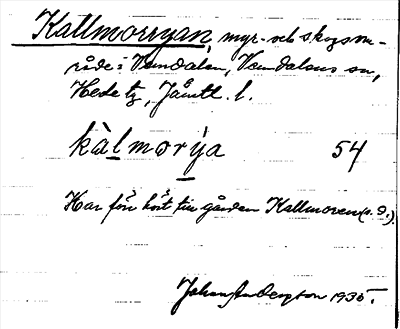 Kallmorryan, myr- och skogsom-
råde i Vemdalen, Vemdalens sn,
Hede tg, Jämtl. l.
kàlmorýa 54
Har förr hört till gården Kallmoren (s. d.).
Johan Anderzton 1935.